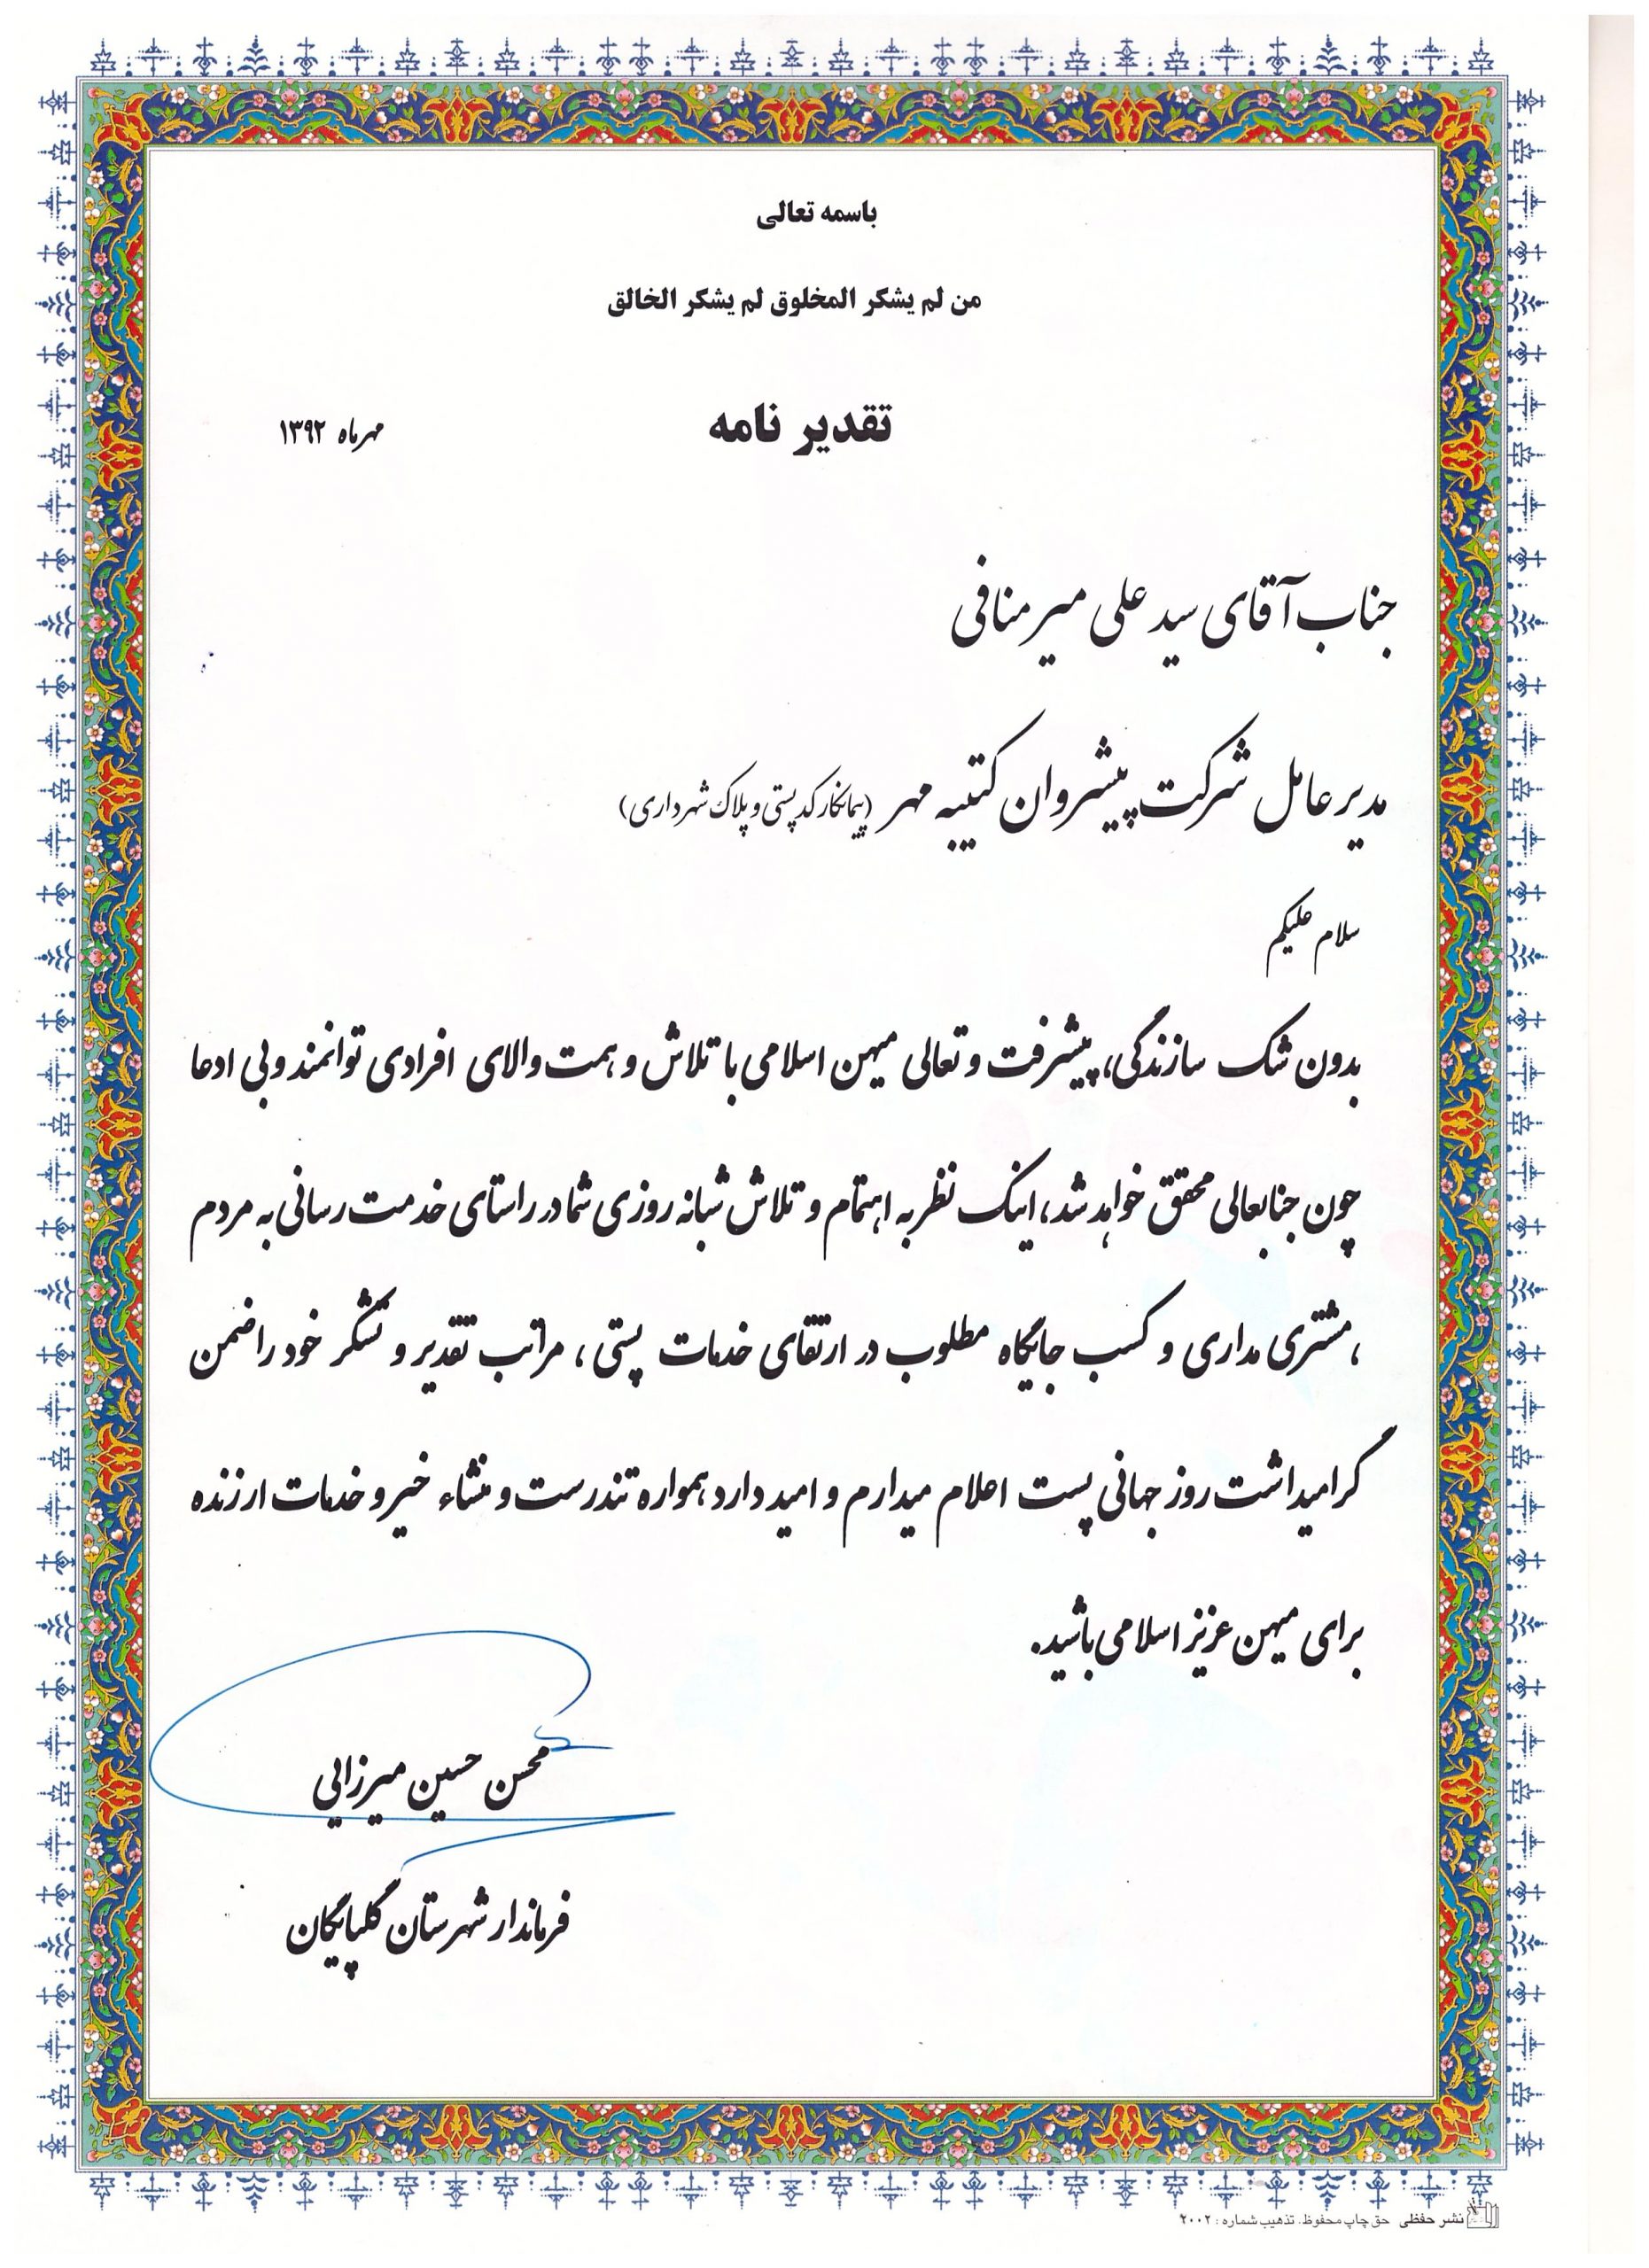 باسمه تعالی
من لم یشکر المخلوق لم یشکر الخالق
تقدیر نامه
مهرماه ۱۳۹۲
جناب آقای سید علی میر منافی
مدیر عامل شرکت پیشروان کتیبه مهر (پیمانکار کد پستی و پلاک شهرداری)
سلام علیکم
بدون شک سازندگی، پیشرفت و تعالی میهن اسلامی با تلاش و همت والای افرادی توانمند و بی ادعا
چون جنابعالی محقق خواهد شد، اینک نظر به اهتمام و تلاش شبانه روزی شما در راستای خدمت رسانی به مردم
، مشتری مداری و کسب جایگاه مطلوب در ارتقای خدمات پستی ، مراتب تقدیر و تشکر خود را ضمن
گرامیداشت روز جهانی پست اعلام میدارم و امید دارد همواره تندرست و منشاء خیر و خدمات ارزنده
برای میهن عزیز اسلامی باشید.
محسن حسین میرزایی
فرماندار شهرستان گلپایگان
نشر حفظی حق چاپ محفوظ. تذهیب شماره : ۲۰۰۲